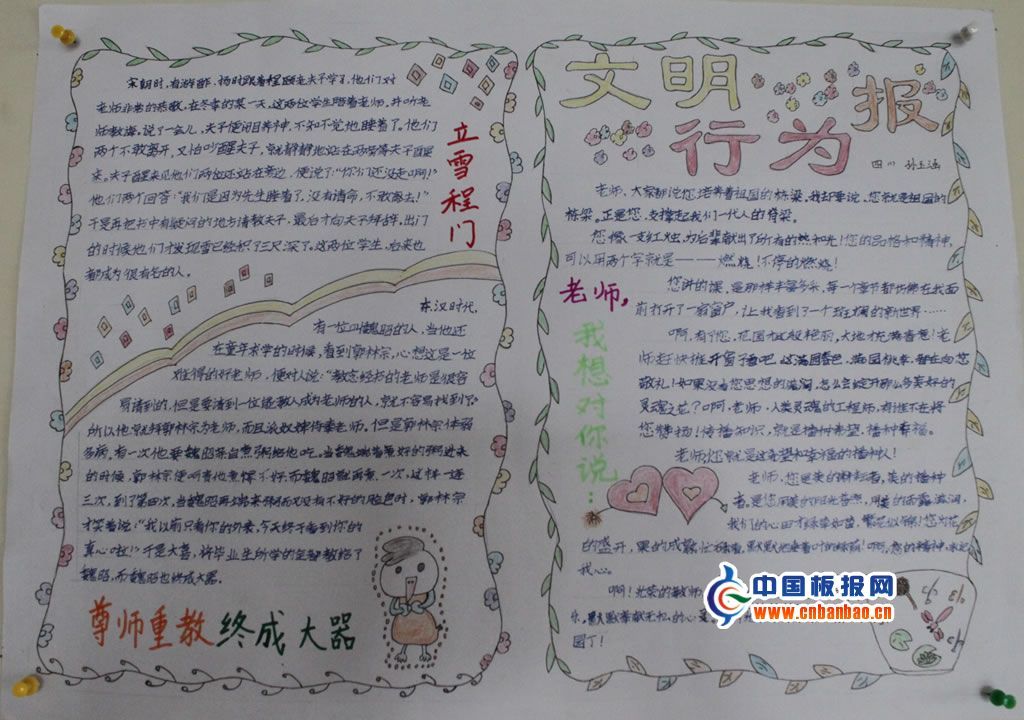 宋朝时,有游酢、杨时跟着程颐老夫子学习,他们对
老师非常的恭敬,在冬季的某一天,这两位学生陪着老师,并听老
师教诲,说了一会儿,夫子便闭目养神,不知不觉他睡着了。他们
两个不敢离开,又怕吵醒夫子,就静静地站在两旁等夫子醒
来。夫子醒来见他们两位还站在旁边,便说:“你们还没走啊!”
他们两个回答:“我们是因为先生睡着了,没有请命,不敢离去!”
于是再把书中有疑问的地方请教夫子,最后才向夫子拜辞。出门
的时候他们才发现雪已经积了三尺深了。这两位学生,后来也
都成为很有名的人。
立雪程门
东汉时代,
有一位叫魏昭的人,当他还
在童年求学的时候,看到郭林宗,心想这是一位
难得的好老师,便对人说:“教念经书的老师是很容
易请到的,但是要请到一位能教人成为老师的人,就不容易找到。”
所以他就拜郭林宗为老师,而且派奴婢侍奉老师。但是郭林宗体弱
多病,有一次他要魏昭亲自煮粥给他吃。当魏昭端着煮好的粥进来
的时候,郭林宗便呵责他煮得不好,而魏昭就再煮一次,这样一连
三次,到了第四次,当魏昭再端来粥而又没有不好的脸色时,郭林宗
才笑着说:“我以前只看你的外表,今天终于看到你的
真心啦!”于是大喜,将毕业生所学的全部教给了
魏昭,而魏昭也终成大器。
尊师重教 终成大器
文明
行为
报
四(1) 孙玉涵
老师,大家都说您培养着祖国的栋梁。我却要说,您就是祖国的
栋梁。正是您,支撑起我们一代人的脊梁。
您像一支红烛,为后辈献出了所有的热和光!您的品格和精神,
可以用两个字就是———燃烧!不停的燃烧!
老师,
我想对你说:
您讲的课,是那样丰富多采,每一个章节都仿佛在我面
前打开了一扇窗户,让我看到了一个斑斓的新世界……
啊,有了您,花园才这般艳丽,大地才充满春意!老
师赶快推开窗子看吧,这满园春色,满园桃李,都在向您
敬礼!如果没有您思想的滋润,怎么会绽开那么多美好的
灵魂之花?啊,老师,人类灵魂的工程师,有谁不在将
您赞扬!传播知识,就是播种希望,播种幸福。
老师您就是这希望和幸福的播种人!
老师,您是美的耕耘者,美的播种
者。是您用美的阳光普照,用美的雨露滋润,
我们的心田才绿草如茵,繁花似锦!您为花
的盛开,果的成熟忙碌着,默默地垂着叶的绿荫!啊,您的精神,永记
我心。
啊!光荣的教师
乐。默默奉献无私的心是
园丁!
中国板报网
www.cnbanbao.cn